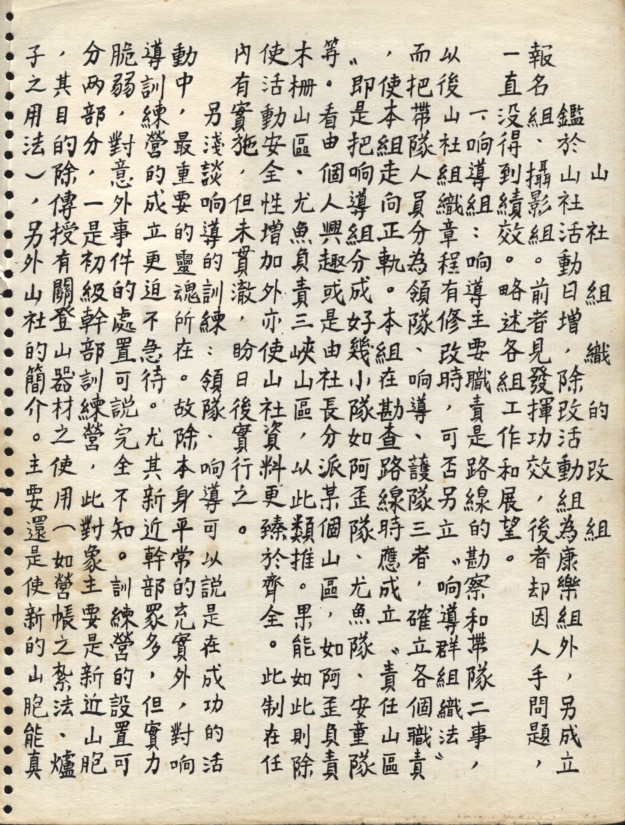 山社組織的改組
鑑於山社活動日增，除改活動組為康樂組外，另成立
報名組、攝影組。前者見發揮功效，後者却因人手問題，
一直没得到績效。略述各組工作和展望。
一、响導組：响導主要職責是路線的勘察和帶隊二事，
以後山社組織章程有修改時，可否另立〝响導群組織法〞
而把帶隊人員分為領隊、响導、護隊三者，確立各個職責
，使本組走向正軌。本組在勘查路線時應成立〝責任山區
〞即是把响導組分成好幾小隊如阿歪隊、尤魚隊、安童隊
等。看由個人興趣或是由社長分派某個山區，如阿歪負責
木柵山區、尤魚負責三峽山區，以此類推。果能如此則除
使活動安全性增加外亦使山社資料更臻於齊全。此制在任
內有實施，但未貫澈，盼日後實行之。
另淺談响導的訓練：領隊、响導可以說是在成功的活
動中，最重要的靈魂所在。故除本身平常的充實外，對响
導訓練營的成立更迫不急待。尤其新近幹部眾多，但實力
脆弱，對意外事件的處置可說完全不知。訓練營的設置可
分两部分，一是初級幹部訓練營，此對象主要是新近山胞
，其目的除傳授有關登山器材之使用（如營帳之紮法、爐
子之用法），另外山社的簡介。主要還是使新的山胞能真